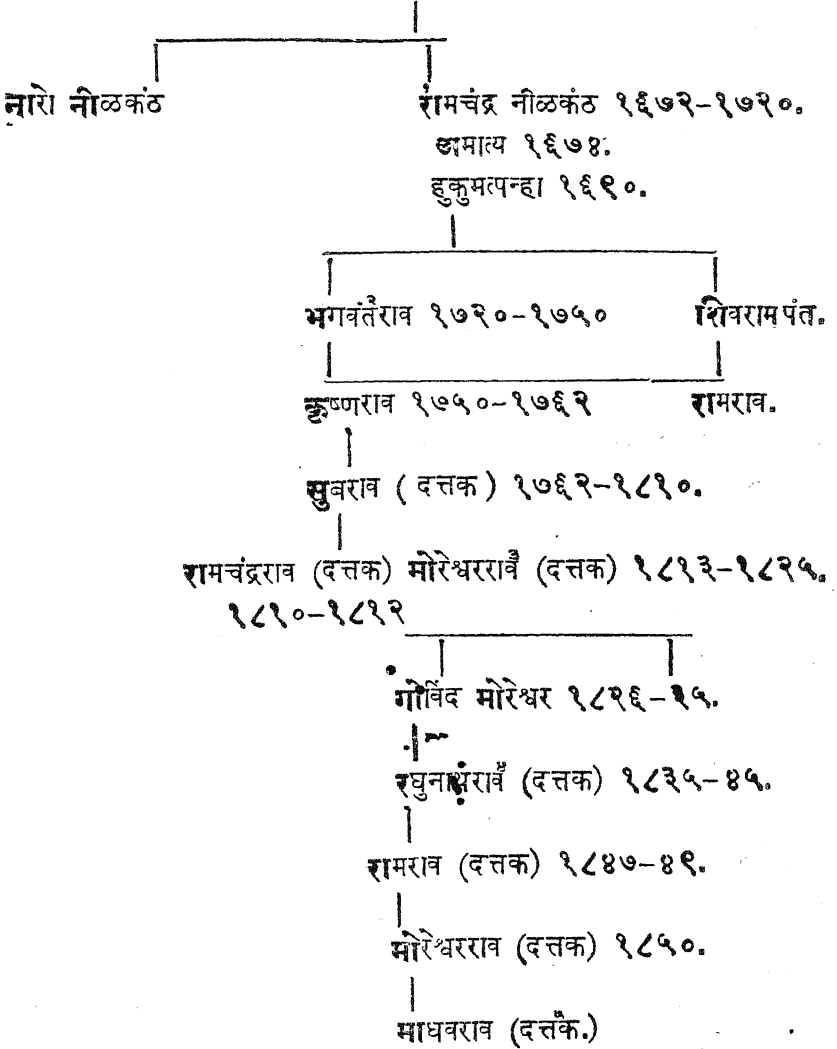 नारो नीळकंठ रामचंद्र नीळकंठ १६७२-१७२०.
अमात्य १६७४.
हुकुमत्पन्हा १६९०.
भगवंतराव १७२०-१७५० शिवरामपंत.
कृष्णराव १७५०-१७६२ रामराव.
सुबराव ( दत्तक ) १७६२-१८१०.
रामचंद्रराव (दत्तक) मोरेश्वरराव (दत्तक) १८१३-१८२५.
१८१०-१८१२
गोविंद मोरेश्वर १८२६-३५.
रघुनाथराव (दत्तक) १८३५-४५.
रामराव (दत्तक) १८४७-४९.
मोरेश्वरराव (दत्तक) १८५०.
माधवराव (दत्तक.)